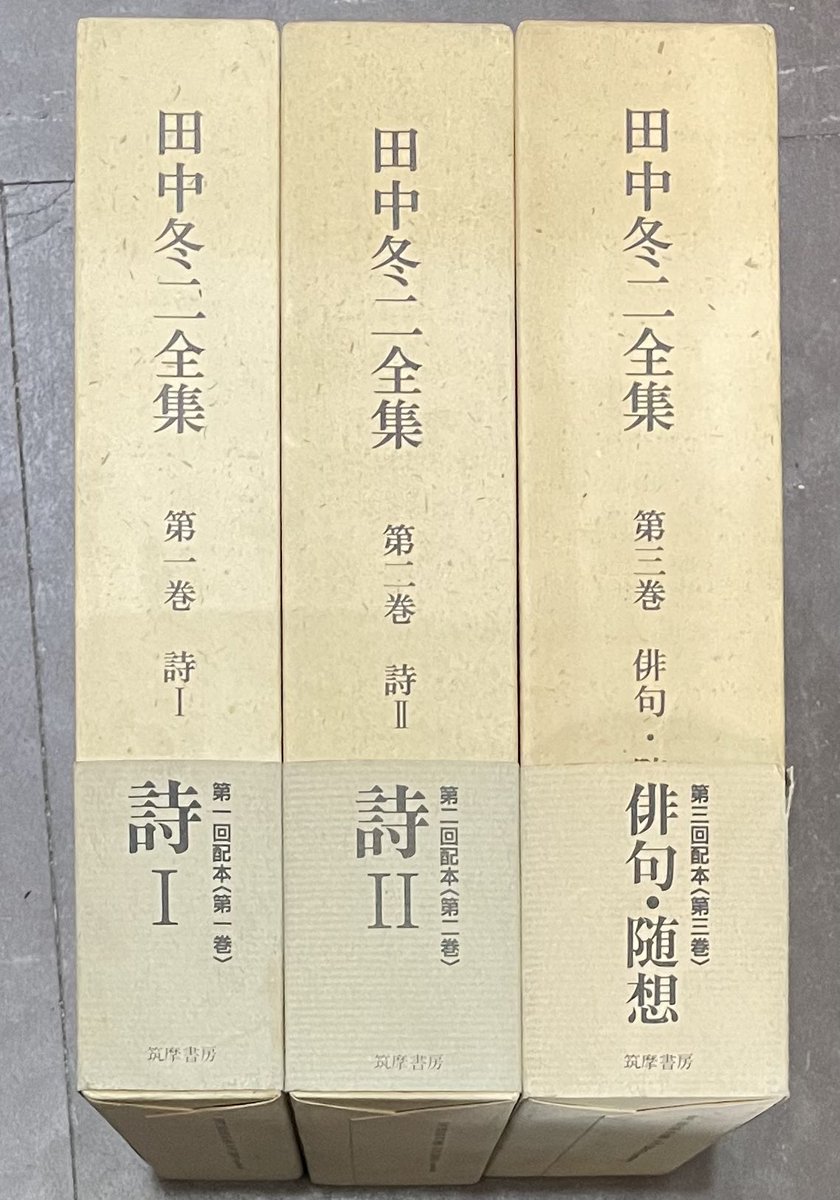 田中冬二全集 第一巻 詩Ⅰ
第一回配本〈第一巻〉
詩Ⅰ
筑摩書房
田中冬二全集 第二巻 詩Ⅱ
第二回配本〈第二巻〉
詩Ⅱ
筑摩書房
田中冬二全集 第三巻 俳句・
第三回配本〈第三巻〉
俳句・随想
筑摩書房